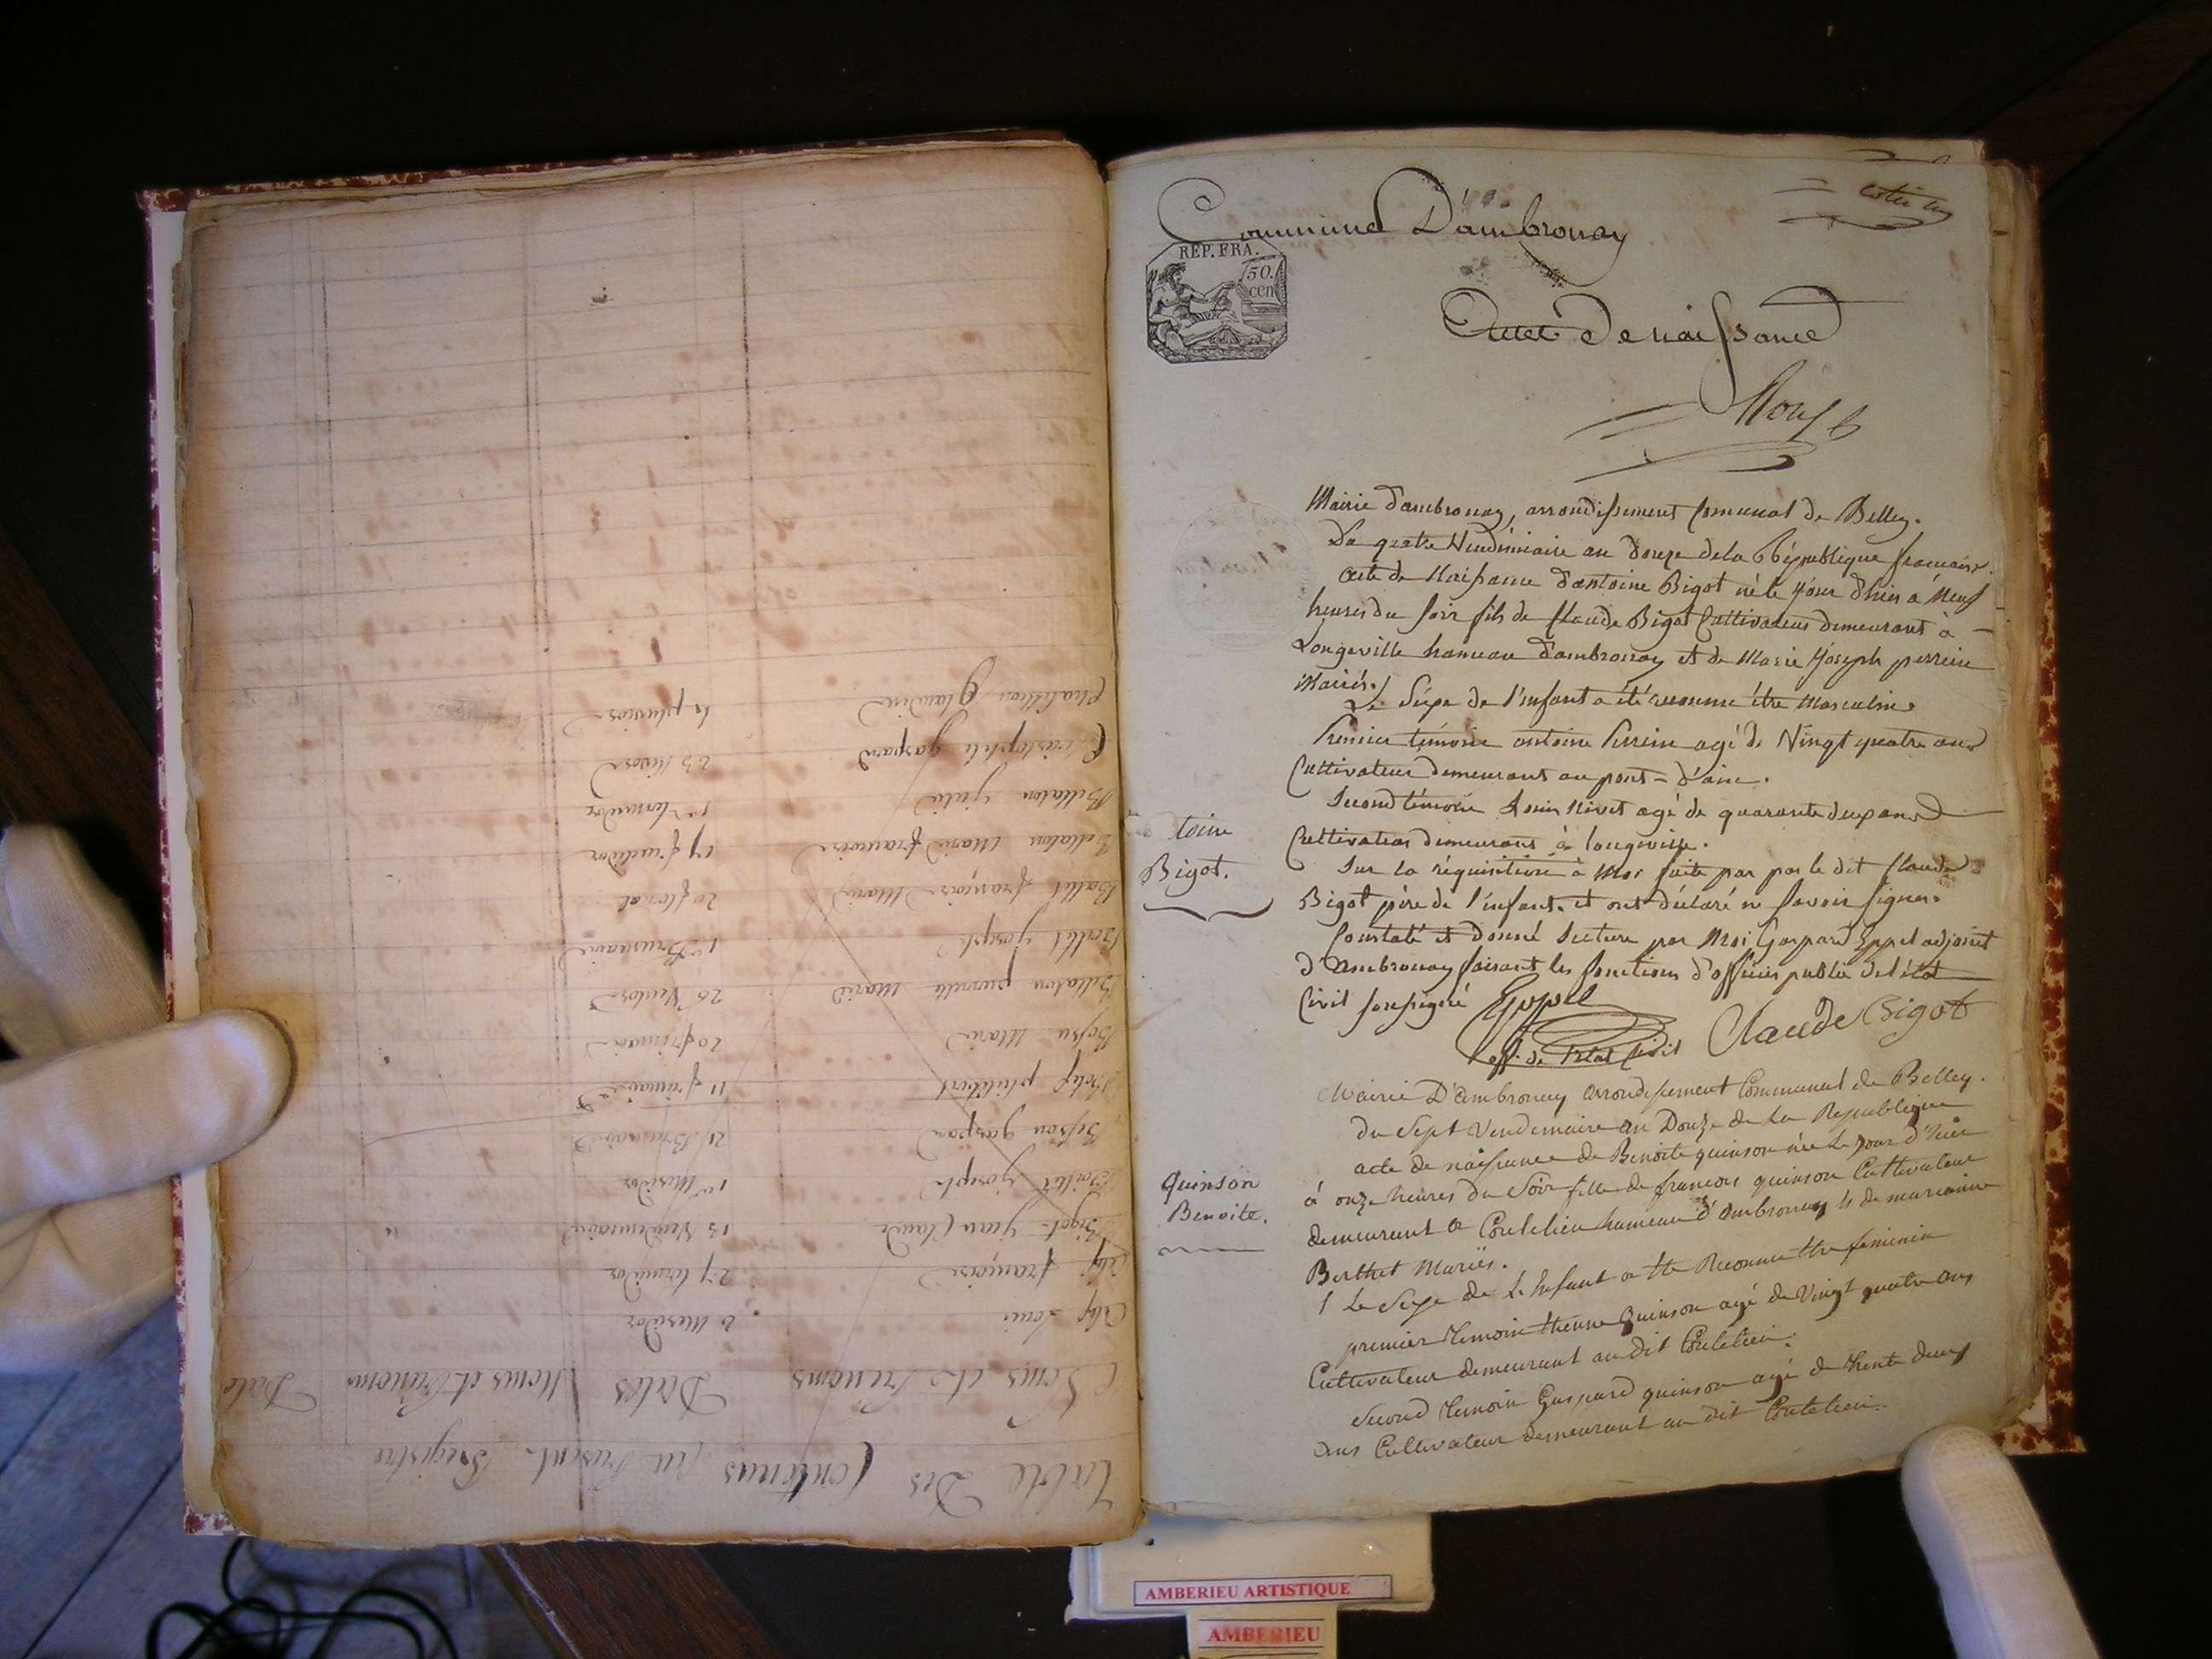 Commune D'ambronay
REP. FRA.
50.
cen
Acte De naissance
Mairie d'ambronay, arrondissement Communal de Belley.
Du quatre Vendémiaire an Douze dela République francaise.
Acte de Naissance d'antoine Bigot né le jour d'hier à Neuf
heures du soir fils de Claude Bigot Cultivateur demeurant à
Longeville hameau d'ambronay et de Marie Joseph perrin
Mariés.
Le Sexe de l'enfant a été reconnu être Masculin.
Premier témoin antoine Perrin agé de Vingt quatre ans
Cultivateur demeurant au pont-d'ain.
Second témoin Louis Nivet agé de quarante deux ans
Cultivateur demeurant à longeville.
toine
Bigot.
Sur la réquisition à Moi faite par par le dit Claude
Bigot père de l'enfant. et ont déclaré ne savoir signer.
Constaté et donné lecture par Moi Gaspard Eppel adjoint
d'Ambronay faisant les fonctions d'officier public de l'état
Civil soussigné Eppel
off. de l'état Civil Claude Bigot
Mairie D'Ambronay arrondissement Communal de Belley.
du Sept Vendemiaire an Douze de La Republique
acte de naissance de Benoite quinson née Le jour d'hier
à onze heures du Soir fille de francois quinson Cultivateur
Quinson
Benoite.
demeurant a Coutelieu hameau d'ambronay & de marianne
Berthet Mariés.
Le Sexe de L'Enfant a Eté Reconnu Etre feminin
premier Temoin Etienne Quinson agé de Vingt quatre ans
Cultivateur demeurant au dit Coutelieu.
Second Temoin Gaspard quinson agé de Trente deux
ans Cultivateur demeurant au dit Coutelieu.
Table Des Contenus Au Présent Registre
Noms et Prenoms Dates Noms et Prenoms Date
Louis 2 Messidor
françoise 27 termidor
Bigot Jean Claude 13 Vendemiaire
Baillet Joseph 1er Messidor
Besson gaspard 21 Brumaire
philibert 11 frimaire
Bossu Marie 20 frimaire
Billaton pierrette Marie 26 Ventose
Ballet Joseph 1er Brumaire
Ballet françois Marie 20 floreal
Billaton Marie françoise 17 fructidor
Billaton Julie 1er termidor
Christophle gaspard 25 Nivose
Chatillion Claudine pluviose
AMBERIEU ARTISTIQUE
AMBERIEU